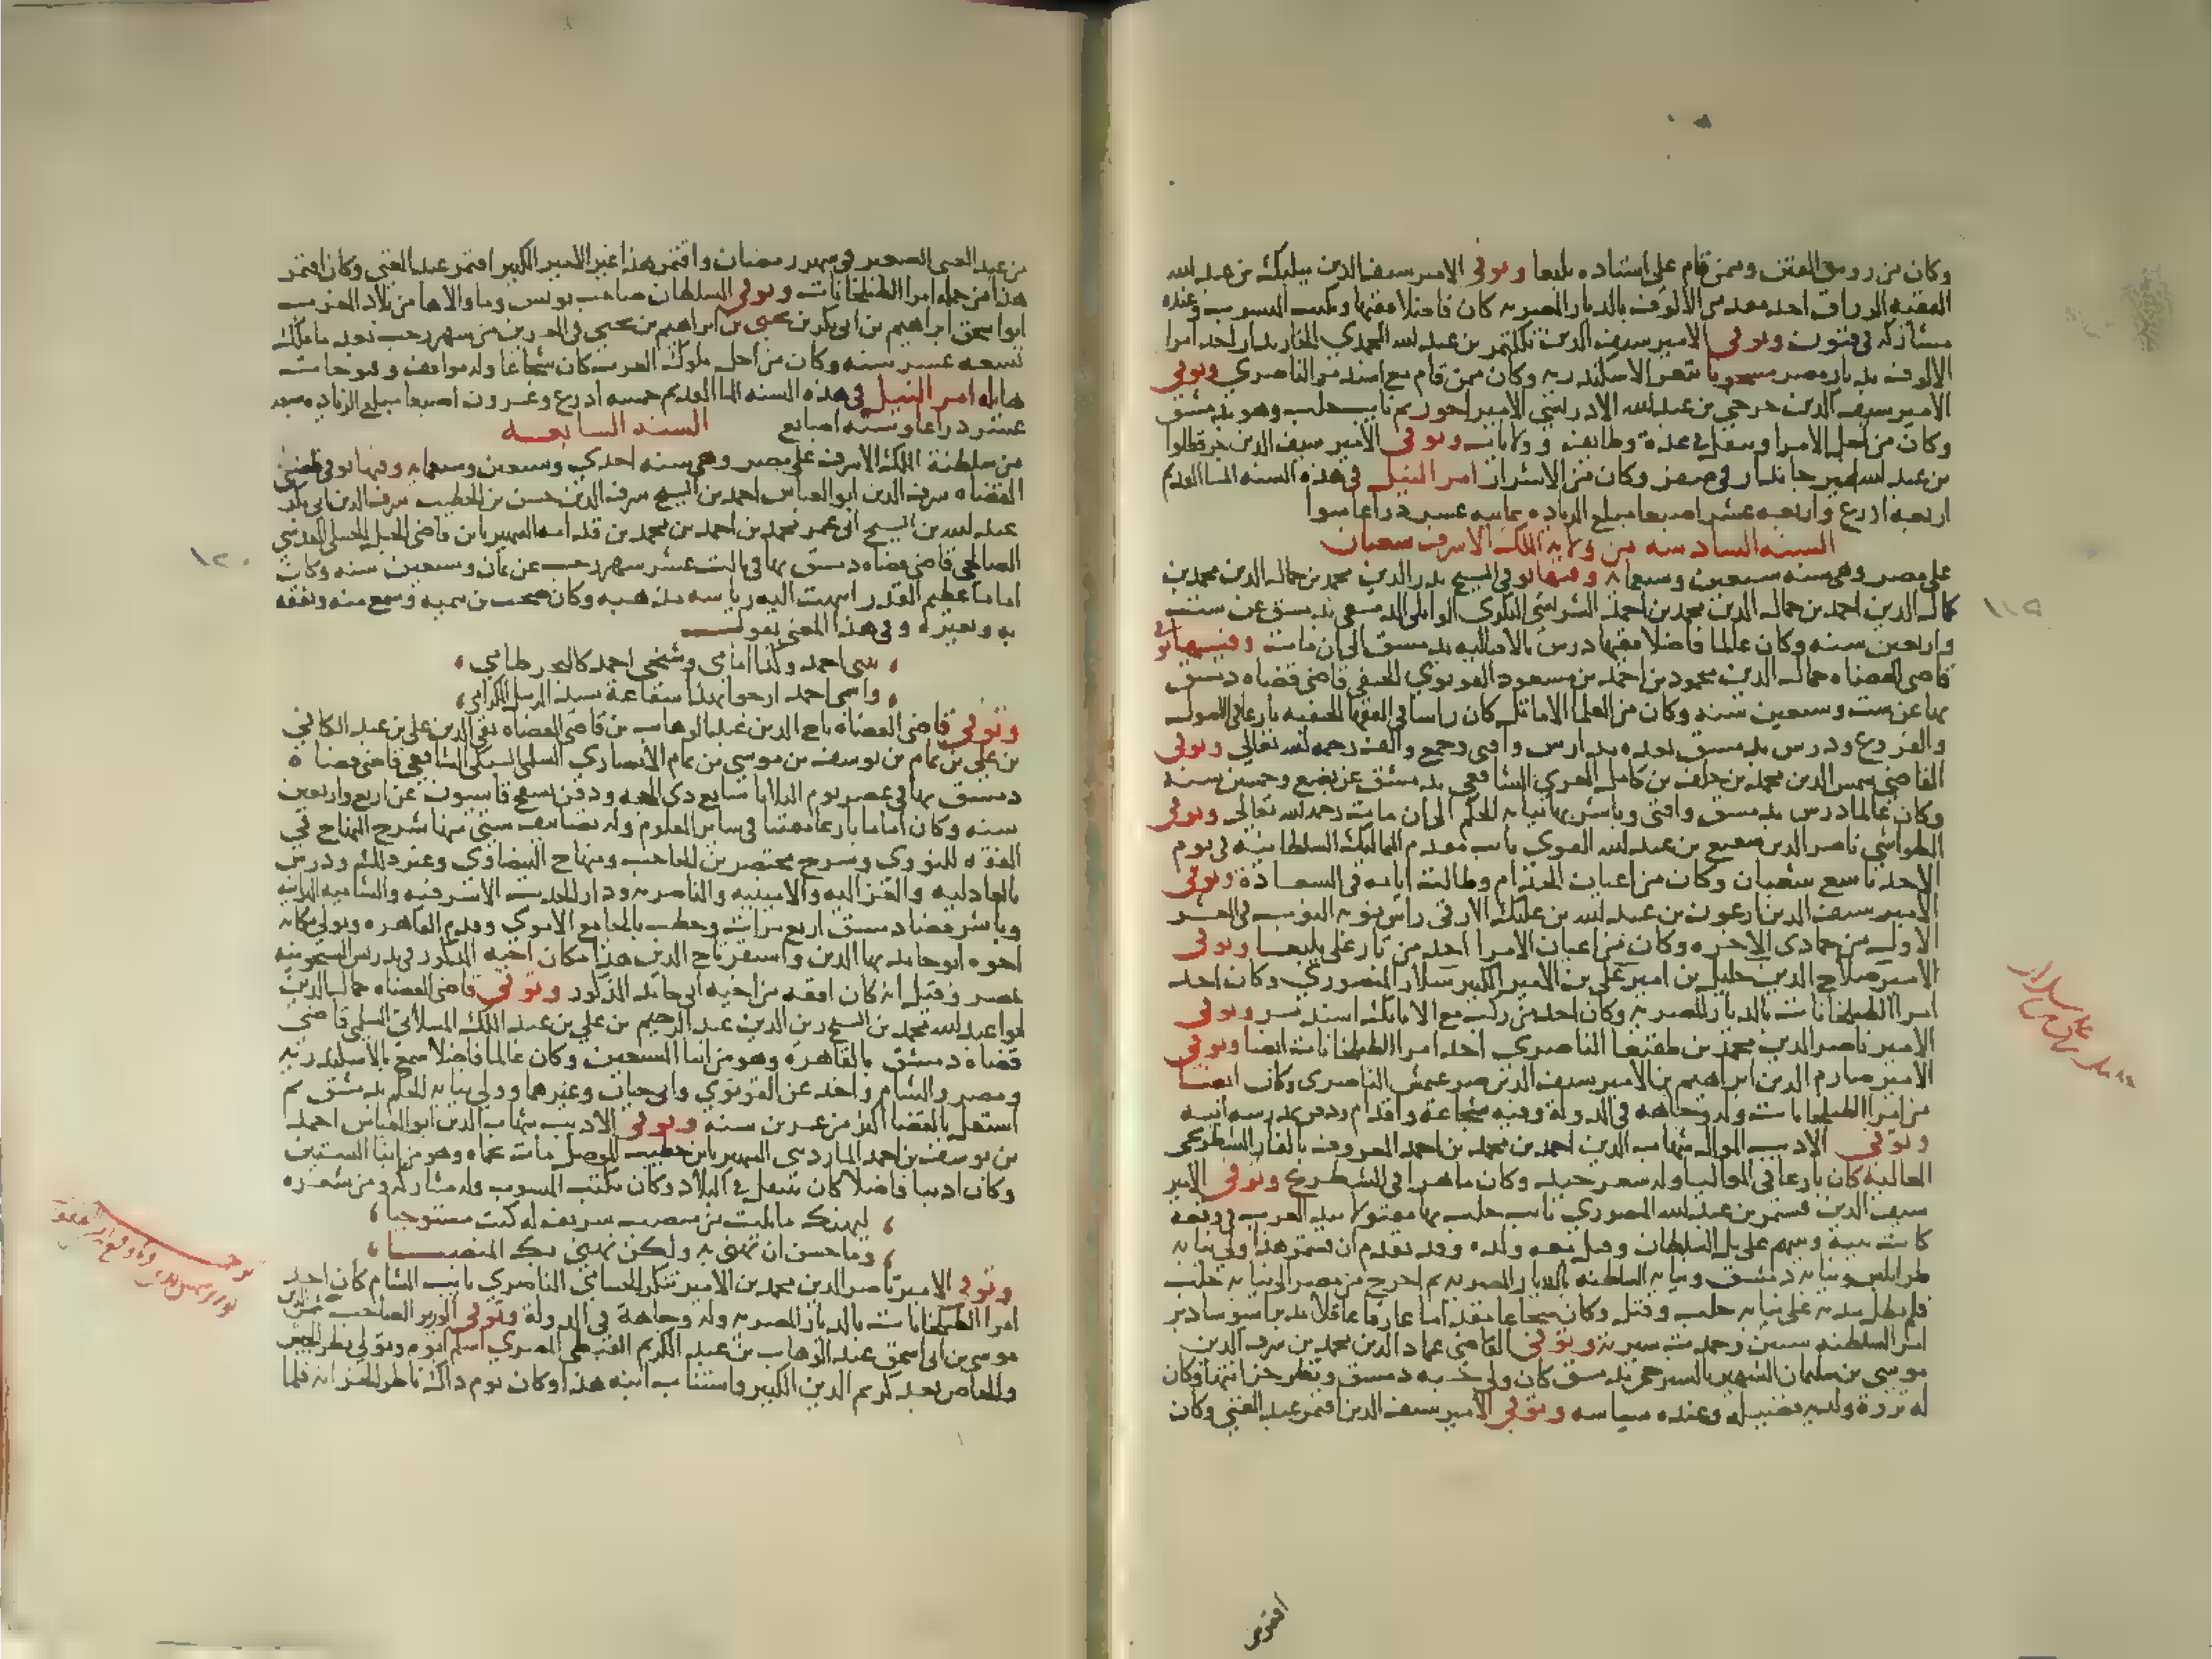 وكان من رءوس الفتن وممن قام على استاذه يلبغا وتوفى الامير سيف الدين بيليك بن عبد الله
الفقيه الزراق احد مقدمى الالوف بالديار المصريه كان فاضلا فقيها وكتب المنسوب وعنده
مشاركة فى فنون وتوفى الامير سيف الدين تلكتمر بن عبد الله المحمدى الخازندار احد امرا
الالوف بديار مصر مسجونا بثغر الاسكندريه وكان ممن قام مع اسندمر الناصري وتوفى
الامير سيف الدين جرجى بن عبد الله الادريسى الامير اخور ثم نايب حلب وهو بدمشق
وكان من اجل الامرا وتنقل فى عدة وظائف وولايات وتوفى الامير سيف الدين جرقطلوا
بن عبد الله امير جاندار فى صفر وكان من الاشرار امر النيل فى هذه السنه الما القديم
اربعه اذرع واربعه عشر اصبعا مبلغ الزياده ثمانيه عشر ذراعا سوا
السنه السادسه من ولايه الملك الاشرف شعبان
على مصر وهى سنه سبعين وسبعمايه وفيها توفى الشيخ بدر الدين محمد بن جمال الدين محمد بن
كمال الدين احمد بن جمال الدين محمد بن احمد الشريشى البكري الوايلى الدمشقى بدمشق عن ست
واربعين سنه وكان عالما فاضلا فقيها درس بالاقباليه بدمشق الى ان مات وفيها توفى
قاضى القضاه جمال الدين محمود بن احمد بن مسعود القونوي الحنفى قاضى قضاه دمشق
بها عن ست وسبعين سنه وكان من العلما الاماثل كان راسا فى الفقها الحنفيه بارعا فى الاصول
والفروع ودرس بدمشق بعده مدارس وافتى وجمع والف رحمه الله تعالى وتوفى
القاضى شمس الدين محمد بن خلف بن كامل الغزي الشافعى بدمشق عن بضع وخمسين سنه
وكان عالما درس بدمشق وافتى وباشر بها نيابه الحكم الى ان مات رحمه الله تعالى وتوفى
الطواشى ناصر الدين شفيع بن عبد الله الفوي نايب مقدم المماليك السلطانيه فى يوم
الاحد تاسع شعبان وكان من اعيان الخدام وطالت ايامه فى السعادة وتوفى
الامير سيف الدين ارغون بن عبد الله بن غلبك الازقى راس نوبه النوب فى العشر
الاول من جمادى الاخره وكان من اعيان الامرا احد من ثار على يلبغا وتوفى
الامير صلاح الدين خليل بن امير على بن الامير الكبير سلار المنصوري وكان احد
امرا الطبلخانات بالديار المصريه وكان احد من ركب مع الاتابك اسندمر وتوفى
الامير ناصر الدين محمد بن طقبغا الناصري احد امرا الطبلخانات ايضا وتوفى
الامير صارم الدين ابراهيم بن الامير سيف الدين صرغتمش الناصرى وكان ايضا
من امرا الطبلخانات وله وجاهه فى الدوله وفيه شجاعة واقدام ودفن بمدرسه ابيه
وتوفى الاديب الموال شهاب الدين احمد بن محمد بن احمد المعروف بالفار الشطرنجى
العاليه كان بارعا فى المواليا وله شعر جيد وكان ماهرا فى الشطرنج وتوفى الامير
سيف الدين قشتمر بن عبد الله المنصوري نايب حلب بها مقتولا بيد العرب فى وقعه
كانت بينه وبينهم على تل السلطان وقتل معه ولده وقد تقدم ان قشتمر هذا ولى نيابه
طرابلس ونيابه دمشق ونيابه السلطنه بالديار المصريه ثم اخرج من مصر الى نيابه حلب
فلم تطل مدته على نيابه حلب وقتل وكان شجاعا مقداما عارفا عاقلا مدبرا سيوسا دبر
امر السلطنه سنين وحمدت سيرته وتوفى القاضى عماد الدين محمد بن شرف الدين
موسى بن سليمان الشهير بالشيرجى بدمشق كان ولى حسبه دمشق ونظر خزانتها وكان
له ثروة ولديه فضيله وعنده سياسه وتوفى الامير سيف الدين اقتمر عبد الغنى وكان
١١٩
من عبد الغنى الصغير فى شهر رمضان واقتمر هذا غير الامير الكبير اقتمر عبد الغنى وكان اقتمر
هذا من جمله امرا الطبلخانات وتوفى السلطان صاحب تونس وما والاها من بلاد الغرب
ابو اسحق ابراهيم بن ابى بكر بن يحيى بن ابراهيم بن يحيى فى العشرين من شهر رجب بعد ما ملك
تسعه عشر سنه وكان من اجل ملوك الغرب كان شجاعا وله مواقف وفتوحات
هايله امر النيل فى هذه السنه الما القديم خمسه اذرع وعشرون اصبعا مبلغ الزياده سبعه
عشر ذراعا وسته اصابع السنه السابعه
من سلطنة الملك الاشرف على مصر وهى سنه احدى وسبعين وسبعمايه وفيها توفى قاضى
القضاه شرف الدين ابو العباس احمد بن الشيخ شرف الدين حسن بن الخطيب شرف الدين ابى بكر
عبد الله بن الشيخ ابى عمر محمد بن احمد بن محمد بن قدامه الشهير بابن قاضى الجبل الحنبلى المقدسى
الصالحى قاضى قضاه دمشق بها فى ثالث عشر شهر رجب عن ثمان وسبعين سنه وكان
اماما عظيم القدر انتهت اليه رياسه مذهبه وكان صحب بن تيميه وسمع منه وتفقه
به وبغيره وفى هذا المعنى يقول
نبى احمد وكذا امامى وشيخى احمد كالبحر طامى
واسمى احمد ارجوا بهذا شفاعة سيد الرسل الكرام
وتوفى قاضى القضاة تاج الدين عبد الوهاب بن قاضى القضاه تقى الدين على بن عبد الكافى
بن على بن تمام بن يوسف بن موسى بن تمام الانصاري السلمى السبكى الشافعى قاضى قضاة
دمشق بها فى عصر يوم الثلاثا سابع ذى الحجه ودفن بسفح قاسيون عن اربع واربعين
سنه وكان اماما بارعا مفتنا فى ساير العلوم وله تصانيف شتى منها شرح المنهاج فى
الفقه للنووى وشرح مختصر بن الحاجب ومنهاج البيضاوى وغير ذلك ودرس
بالعادليه والغزاليه والامينيه والناصريه ودار الحديث الاشرفيه والشاميه البرانيه
وباشر قضا دمشق اربع مرات وخطب بالجامع الاموى وقدم القاهره وتولى مكانه
اخوه ابو حامد بها الدين واستقر تاج الدين هذا مكان اخيه المذكور فى تدريس الشيخونيه
بمصر وقيل انه كان افقه من اخيه ابى حامد المذكور وتوفى قاضى القضاه جمال الدين
ابو عبد الله محمد بن الشيخ زين الدين عبد الرحيم بن على بن عبد الملك المسلاتى السلمى قاضى
قضاه دمشق بالقاهرة وهو من ابنا السبعين وكان عالما فاضلا سمع بالاسكندريه
ومصر والشام واخذ عن القونوي وابى حيان وغيرهما وولى نيابه الحكم بدمشق ثم
استقل بالقضا اكثر من عشرين سنه وتوفى الاديب شهاب الدين ابو العباس احمد
بن يوسف بن احمد الماردينى الشهير بابن خطيب الموصل مات بحماه وهو من ابنا الستين
وكان اديبا فاضلا كان يتنقل فى البلاد وكان يكتب المنسوب وله مشاركه ومن شعره
ليهنك ما نلت من منصب شريف له كنت مستوجبا
وما حسن ان نهنى به ولكن نهنى بك المنصبا
وتوفى الامير ناصر الدين محمد بن الامير تنكز الحسامى الناصري نايب الشام كان احد
امرا الطبلخانات بالديار المصريه وله وجاهة فى الدولة وتوفى الوزير الصاحب شمس الدين
موسى بن ابى اسحق عبد الوهاب بن عبد الكريم القبطى المصري اسلم ابوه وتولى نظر الجيش
والخاص بعد كريم الدين الكبير واستناب ابنه هذا وكان يوم ذاك ناظر الخزانه فلما
١٢٠